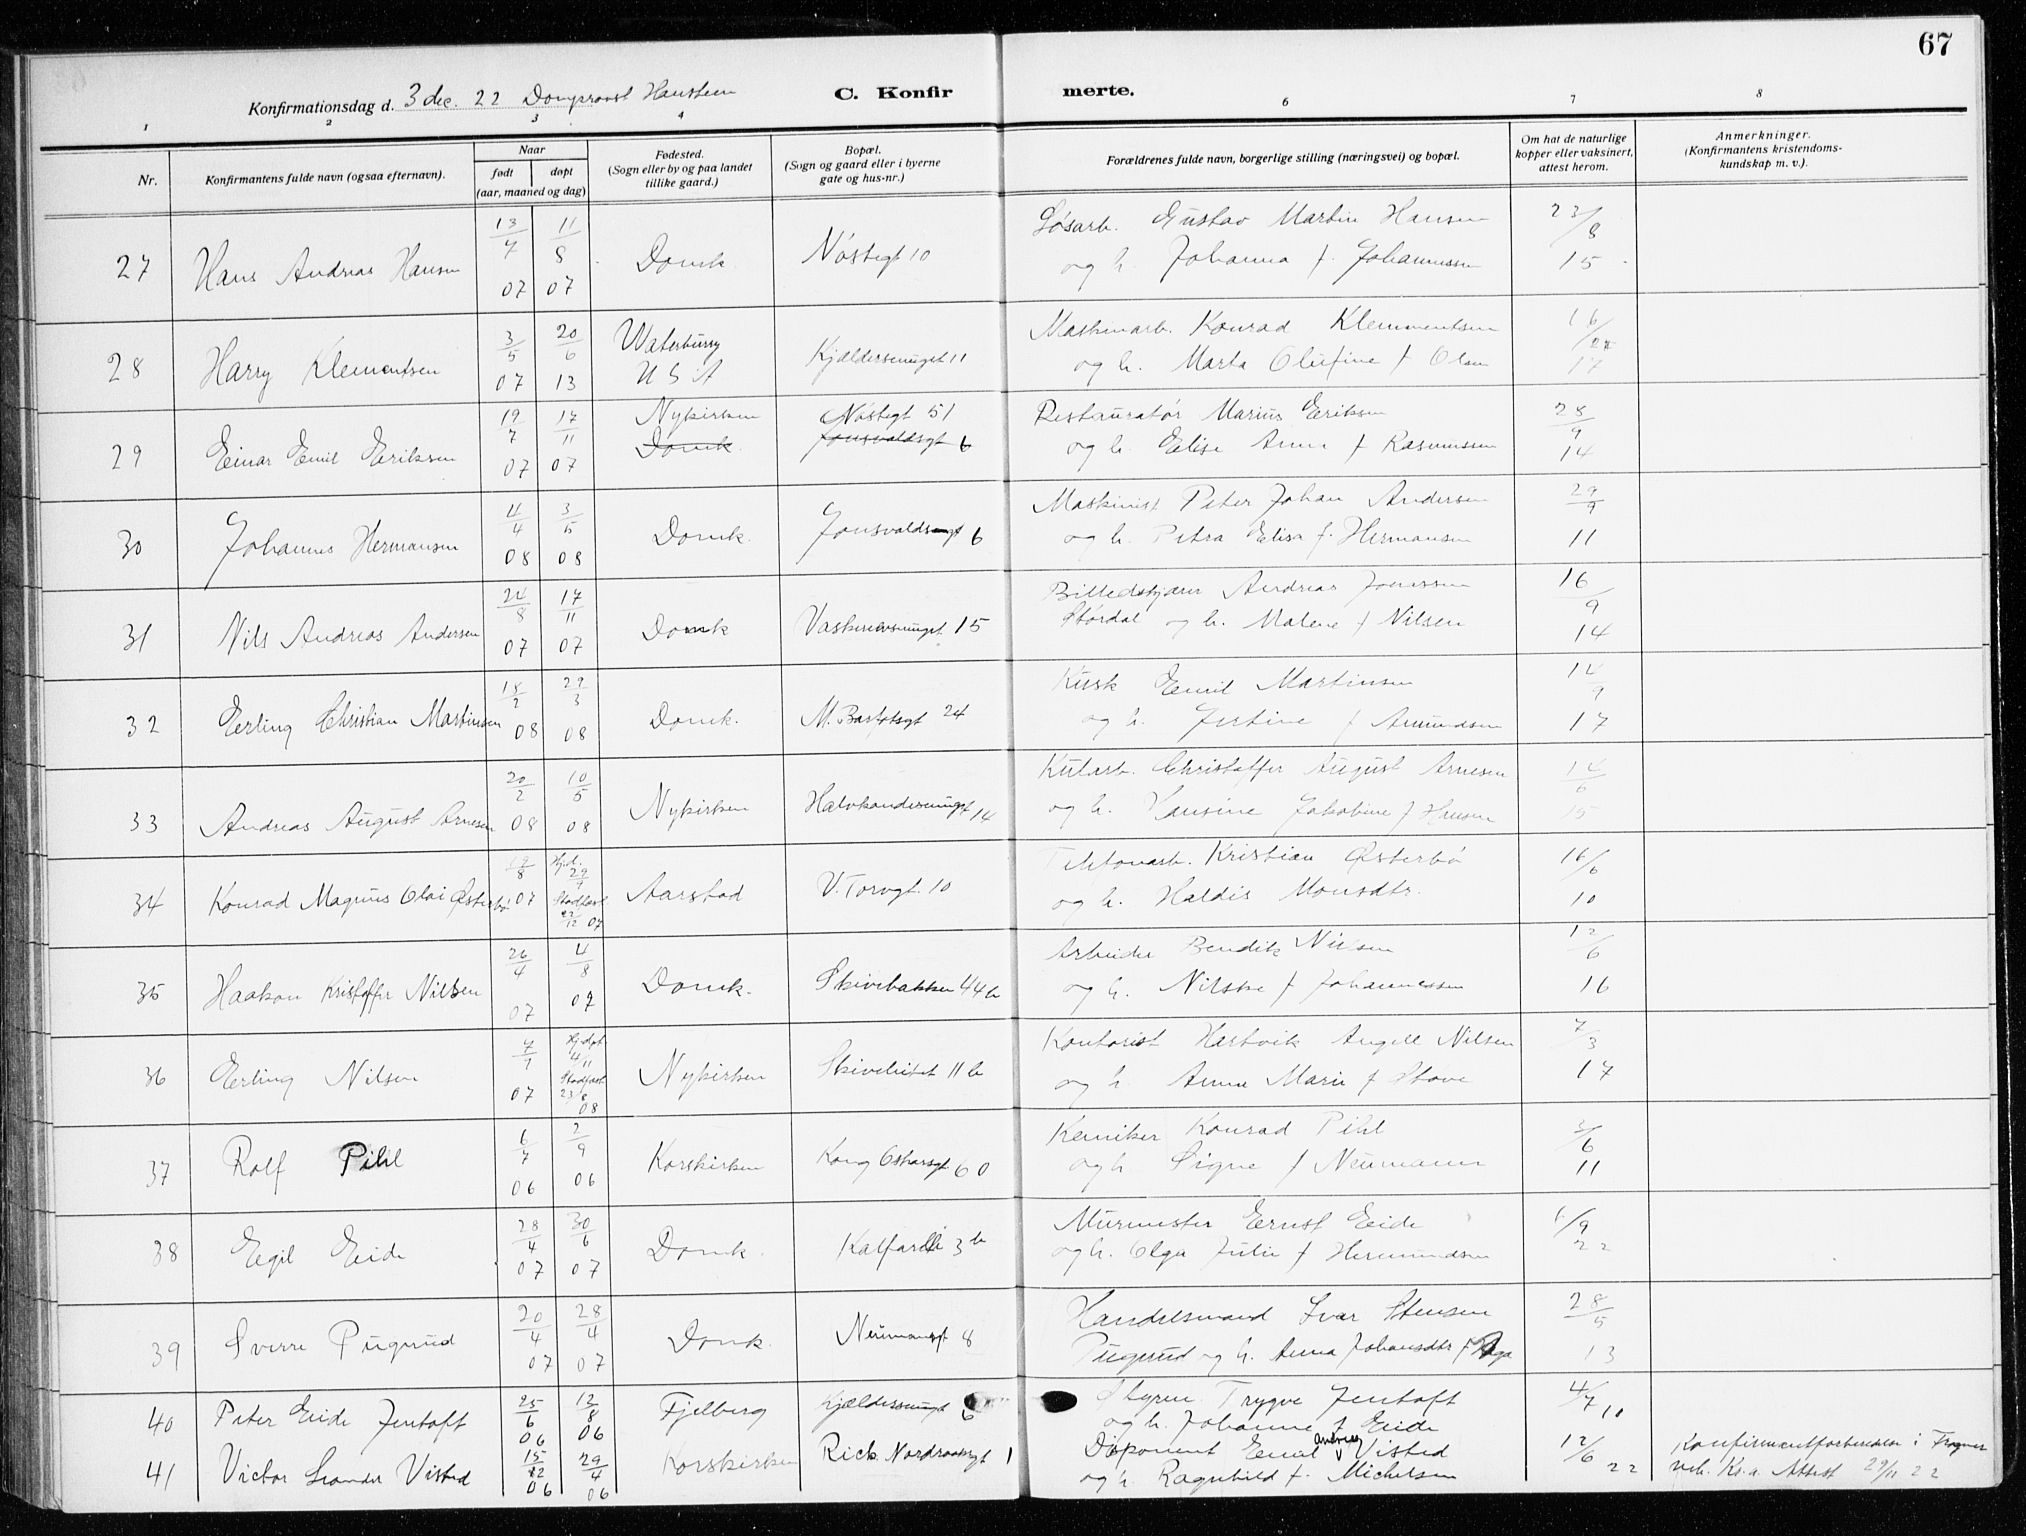 67
Konfirmationsdag d. 3 dec. 22 Domprovst Hansteen C. Konfirmerte.
1 2 3 4 6 7 8
Nr.
Konfirmantens fulde navn (ogsaa efternavn).
Naar
født døpt
(aar, maaned og dag)
Fødested.
(Sogn eller by og paa landet
tillike gaard.)
Bopæl.
(Sogn og gaard eller i byerne
gate og hus-nr.)
Forældrenes fulde navn, borgerlige stilling (næringsvei) og bopæl.
Om hat de naturlige
kopper eller vaksinert,
attest herom.
Anmerkninger.
(Konfirmantens kristendoms-
kundskap m. v.).
27 Hans Andreas Hansen 13/7 07 11/8 07 Domk Nøstegt 10
Løsarb. Gustav Martin Hansen
og h. Johanna f. Johannessen
23/8 15
28 Harry Klementsen 3/5 07 20/6 13 Waterburry U S A Kjældersmuget 11
Maskinarb. Konrad Klementsen
og h. Marta Olufine f Olsen
16/ 17
29 Einar Emil Eriksen 19/7 07 17/11 07 Nykirken Domk. Nøstegt 51 Jonsvoldsgt 6
Restauratør Marius Eriksen
og h. Elise Anna f Rasmussen
28/9 14
30 Johannes Hermansen 4/4 08 3/5 08 Domk. Jonsvoldsgt 6
Maskinist Peter Johan Andersen
og h. Petra Elisa f. Hermansen
29/9 11
31 Nils Andreas Andersen 24/8 07 17/11 07 Domk Vaskerelvsmuget 15
Billedskjærer Andreas Jonassen
Størdal og h. Malene f Nilsen
16/9 14
32 Erling Christian Martinsen 18/2 08 29/3 08 Domk. M. Barfotsgt 24
Kusk Emil Martinsen
og h. Jertine f Amundsen
14/9 17
33 Andreas August Arnesen 20/2 08 10/5 08 Nykirken Halvkandesmugt 14
Kularb. Christoffer August Arnesen
og h. Hansine Jakobine f Hansen
14/6 15
34 Konrad Magnus Olai Østerbø 19/8 07 Hj.d. 29/9 Stadfæst 22/12 07 Aarstad V. Torvgt. 10
Kristian Østerbø
og h. Haldis Monsdtr.
16/6 10
35 Haakon Kristoffer Nilsen 26/4 07 4/8 07 Domk. Skivebakken 44 b
Arbeider Bendik Nilsen
og h. Nilske f Johannessen
12/6 16
36 Erling Nilsen 7/7 07 Hj.døpt 4/11 Stadfæst 23/8 08 Nykirken 11 b
Kontorist Hartvik Angell Nilsen
og h. Anna Marie f Stave
7/3 17
37 Rolf Pihl 6/7 06 2/9 06 Korskirken Kong Oskarsgt 60
Kemiker Konrad Pihl
og h Signe f Neumann
3/6 11
38 Egil Eide 28/4 07 30/6 07 Domk. 3 b
Murmester Ernst Eide
og h. Olga Julie f Hermundsen
/9 22
39 Sverre Pugerud 20/4 07 28/4 07 Domk. Neumansgt 8
Handelsmand Ivar Stensen
Pugerud og h. Anna Johansdtr f
28/5 13
40 Peter Eide Jentoft 25/6 06 12/8 06 Fjelberg Kjældersmugt 6
Styrm. Trygve Jentoft
og h. Johanne f Eide
4/7 10
41 Victor Leander Visted 15/12 06 29/4 06 Korskirken Rick. Nordraaksgt 1
Disponent Emil Andreas Visted
og h. Ragnhild f. Michelsen
12/6 22
Konfirmantforberedelse i Frogner
Kr.a. Attest 29/11 22